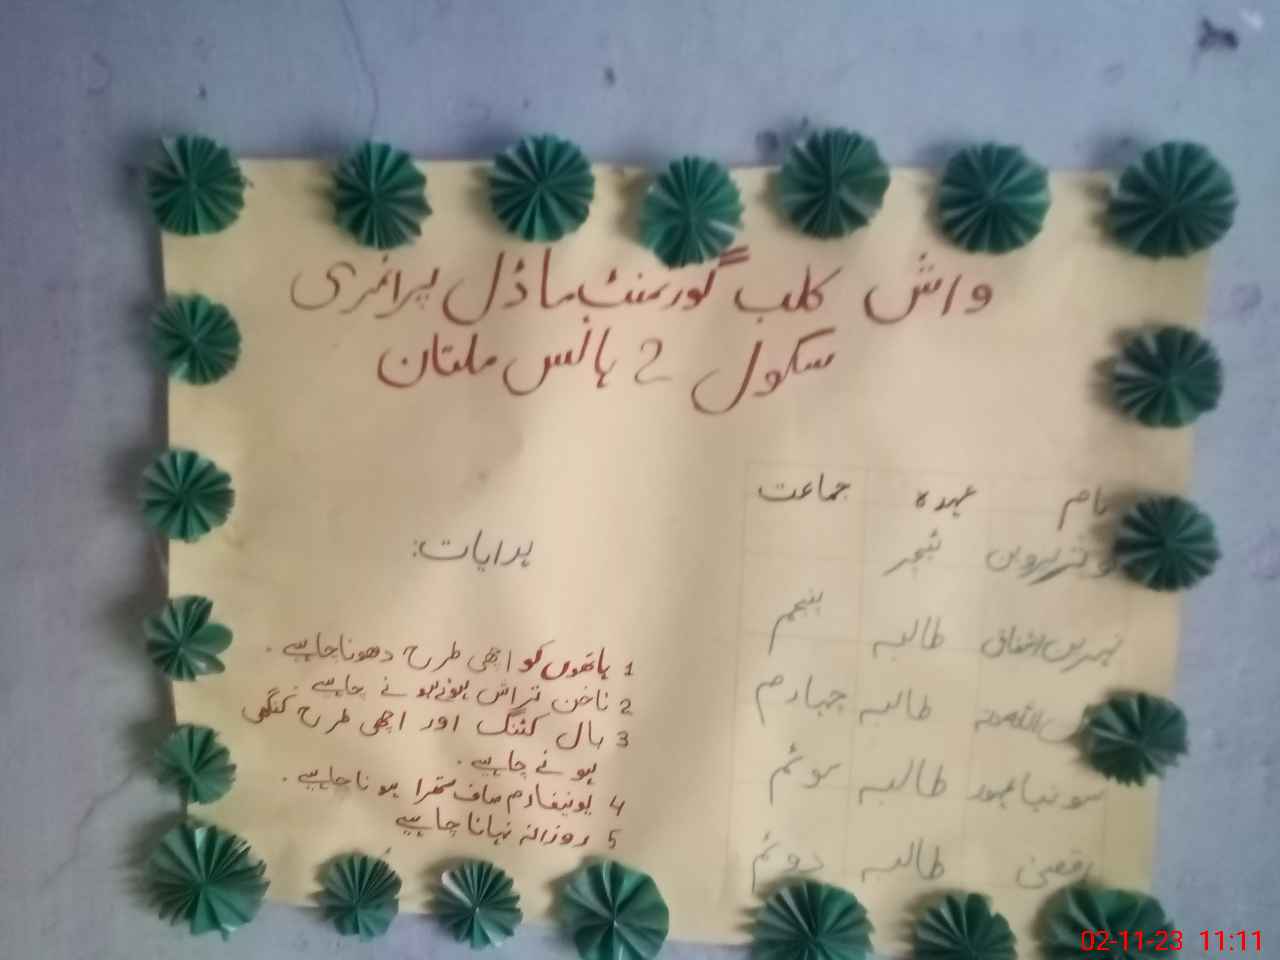 واش کلب گورنمنٹ ماڈل پرائمری
سکول 2 ہانس ملتان
نام عہدہ جماعت
پروین ٹیچر
اشفاق طالبہ پنجم
طالبہ چہارم
سونیا طالبہ سوئم
طالبہ دوئم
ہدایات:
1 ہاتھوں کو اچھی طرح دھونا چاہیے ۔
2 ناخن تراش ہوئے ہونے چاہیے
3 بال کٹنگ اور اچھی طرح کنگھی
ہونے چاہیے ۔
4 یونیفارم صاف ستھرا ہونا چاہیے ۔
5 روزانہ نہانا چاہیے
02-11-23 11:11